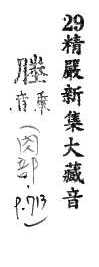 29精嚴新集大藏音
(肉部, p.713)